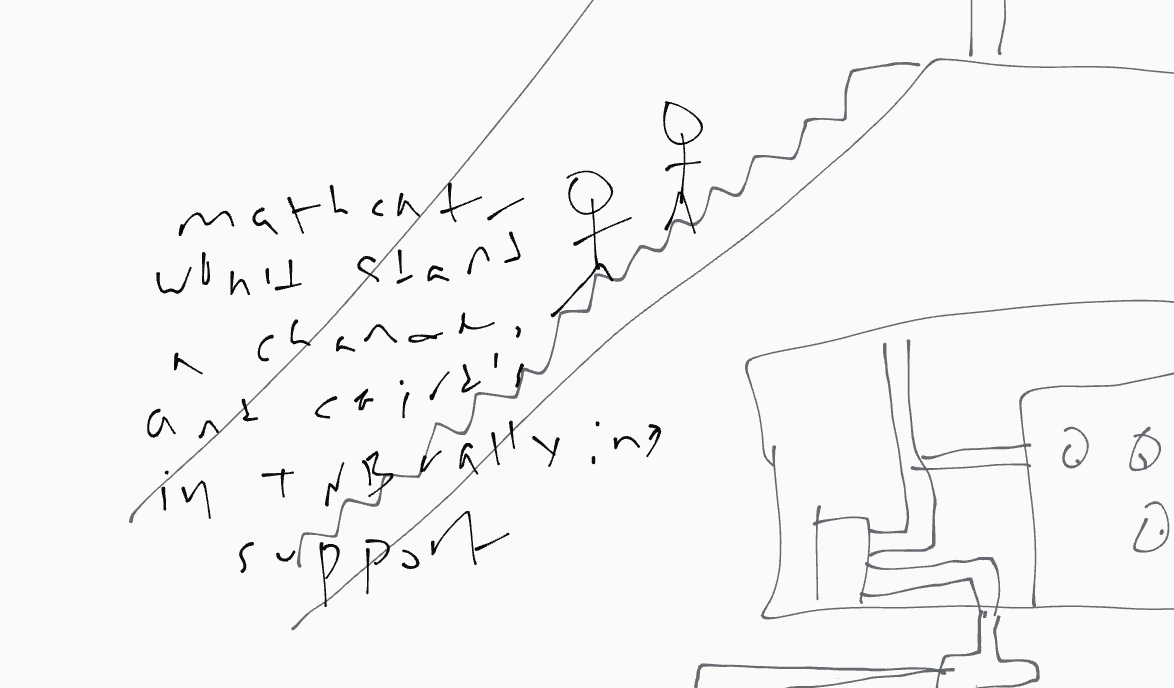 mathcat
won't stand
a chance,
and
in TNB rallying
support